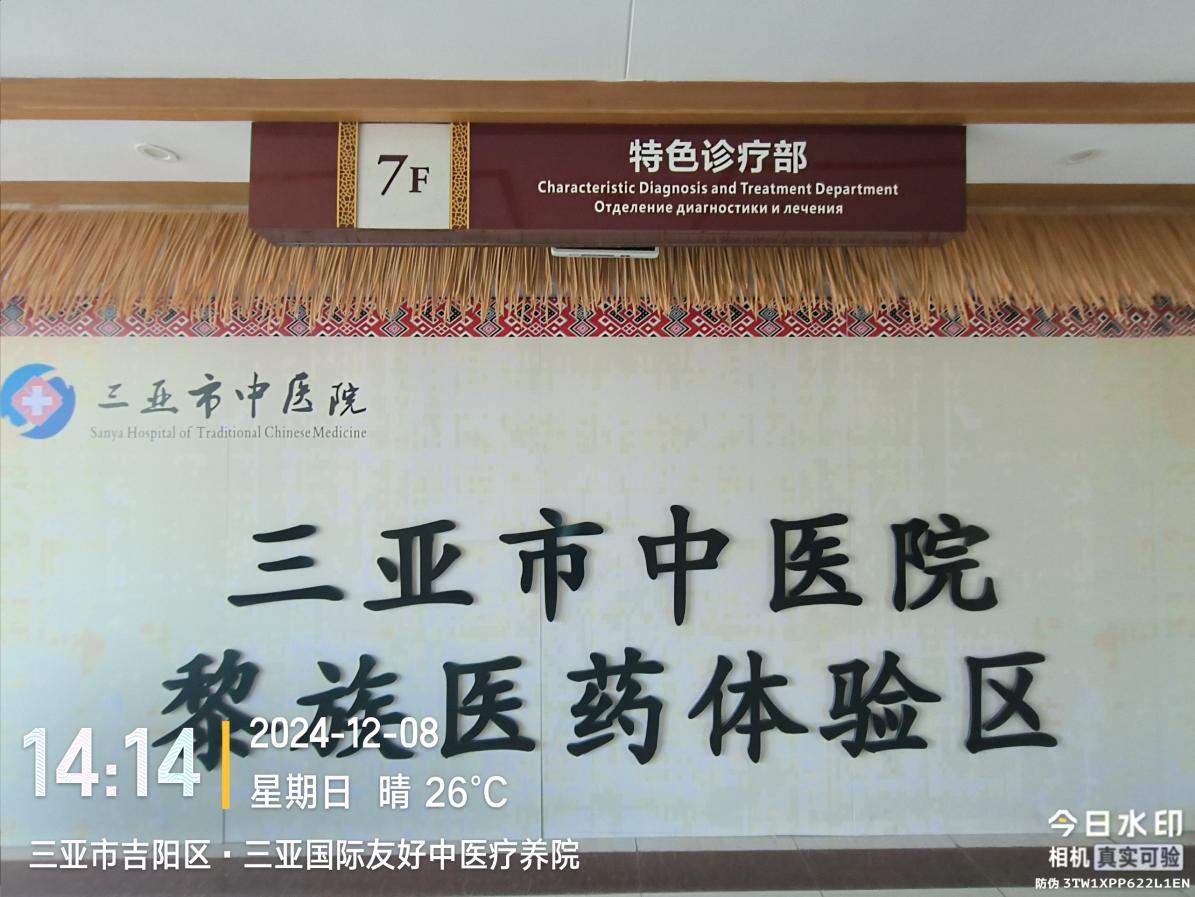 7F
特色诊疗部
Characteristic Diagnosis and Treatment Department
Отделение диагностики и лечения
三亚市中医院
Sanya Hospital of Traditional Chinese Medicine
三亚市中医院
黎族医药体验区
14:14
2024-12-08
星期日 晴 26°C
三亚市吉阳区·三亚国际友好中医疗养院
今日水印
相机 真实可验
防伪 3TW1XPP622L1EN